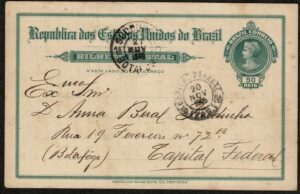 Republica dos Estados Unidos do Brazil
BRAZIL CORREIO
BILHETE POSTAL
N'ESTE LADO SÓ O ENDEREÇO
50
REIS
20
NOV
Exmª Srª
D. Anna
Rua 19 Fevereiro nº 72
(Botafogo)
Capital Federal
AMERICAN BANK NOTE CO. NEW YORK